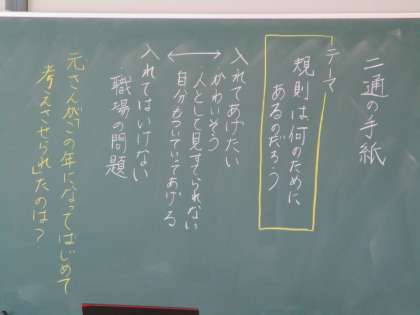 二通の手紙
テーマ
規則は何のために
あるのだろう
入れてあげたい
かわいそう
人として見すてられない
自分もついていってあげる
入れてはいけない
職場の問題
元さんが「この年になってはじめて
考えさせられ」たのは？